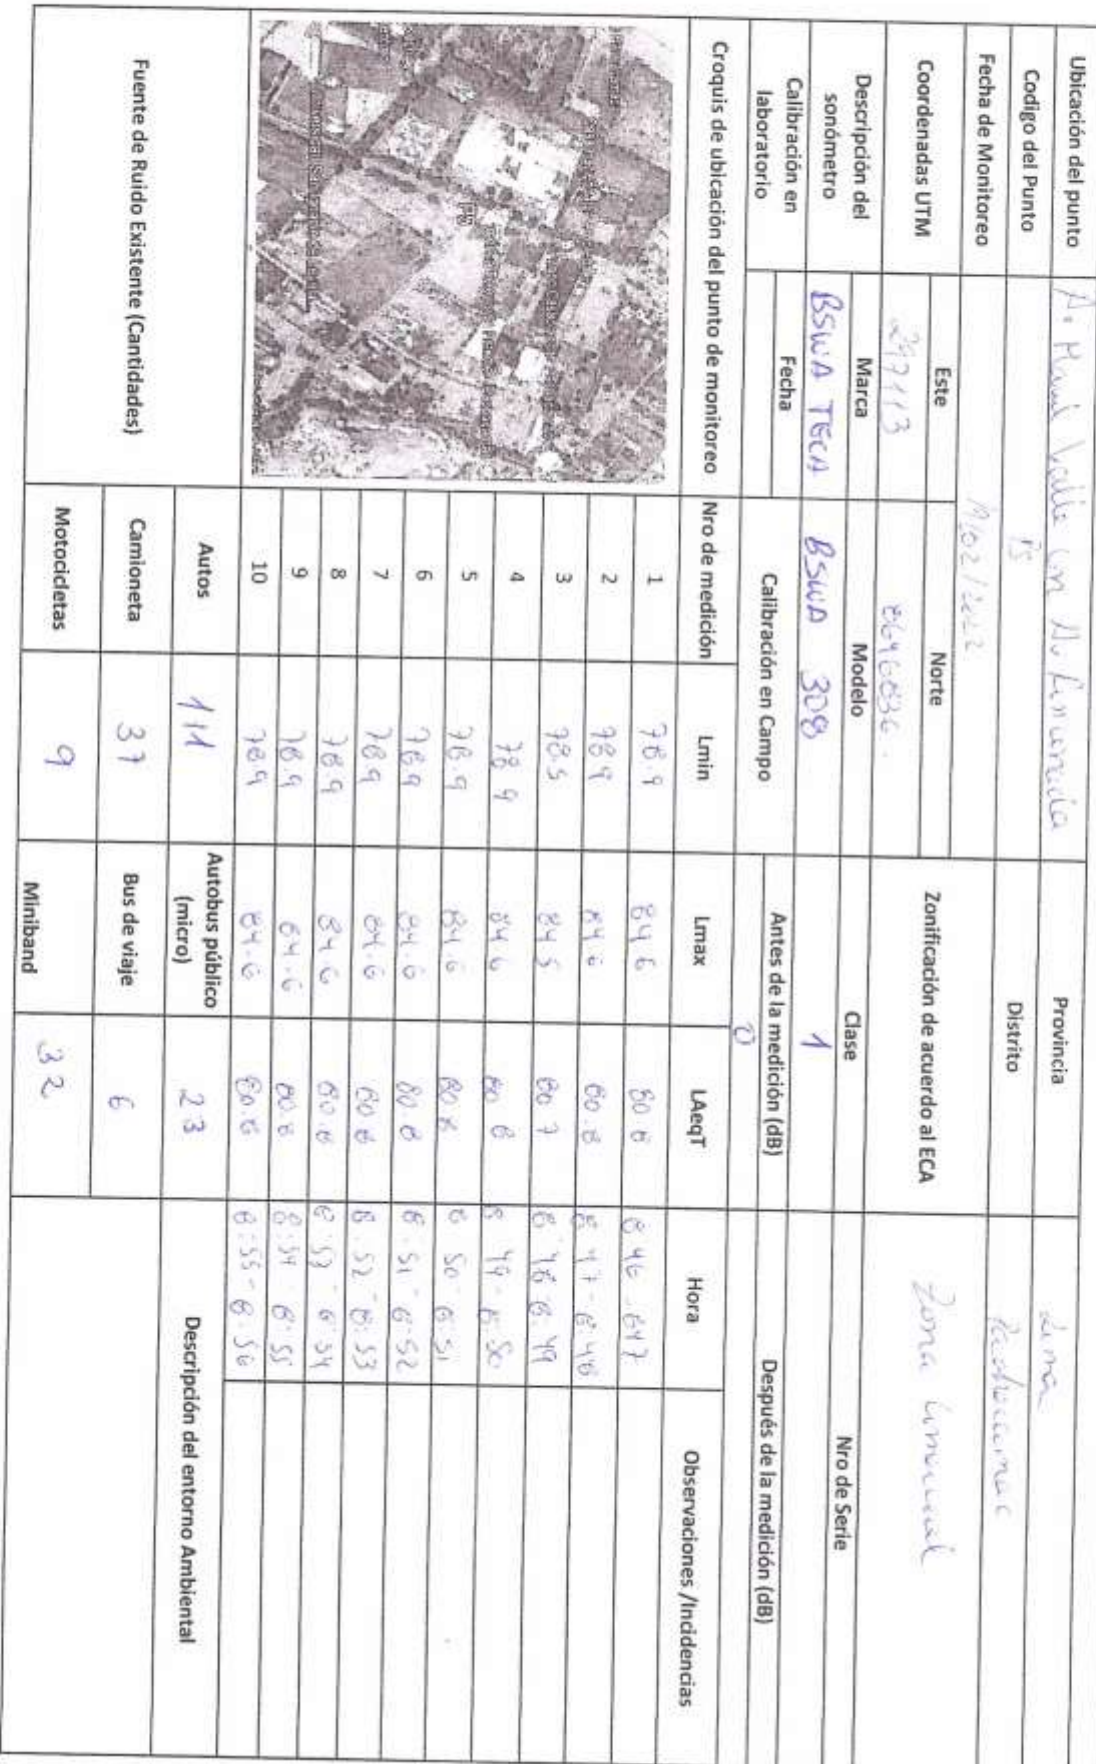 Ubicación del punto A. Manuel Valle con Av. Provincia Lima
Codigo del Punto P5 Distrito Pachacamac
Fecha de Monitoreo /02/2022
Coordenadas UTM Este Norte Zonificación de acuerdo al ECA Zona Comercial
297113 8646836
Descripción del sonómetro Marca Modelo Clase Nro de Serie
BSWA TECH BSWA 308 1
Calibración en laboratorio Fecha Calibración en Campo Antes de la medición (dB) Después de la medición (dB)
0
Croquis de ubicación del punto de monitoreo Nro de medición Lmin Lmax LAeqT Hora Observaciones /Incidencias
1 78.9 84 6 80 8 8 46 - 8 47
2 78 9 84 6 80.8 8 47 - 8:48
3 78.5 84 5 80 7 8 48 8:49
4 78 9 84 6 80 8 8 49 - 8:50
5 78.9 84.6 80 8 8 50 - 8 51
6 78.9 84.6 80 8 8:51 - 8:52
7 78 9 84.6 80 8 8:52 - 8:53
8 78 9 84.6 80.8 8:53 - 8:54
9 78 9 84.6 80.8 8:54 - 8:55
10 78 9 84.6 80.8 8:55 - 8:56
Fuente de Ruido Existente (Cantidades) Autos 111 Autobus público (micro) 23 Descripción del entorno Ambiental
Camioneta 37 Bus de viaje 6
Motocicletas 9 Miniband 32